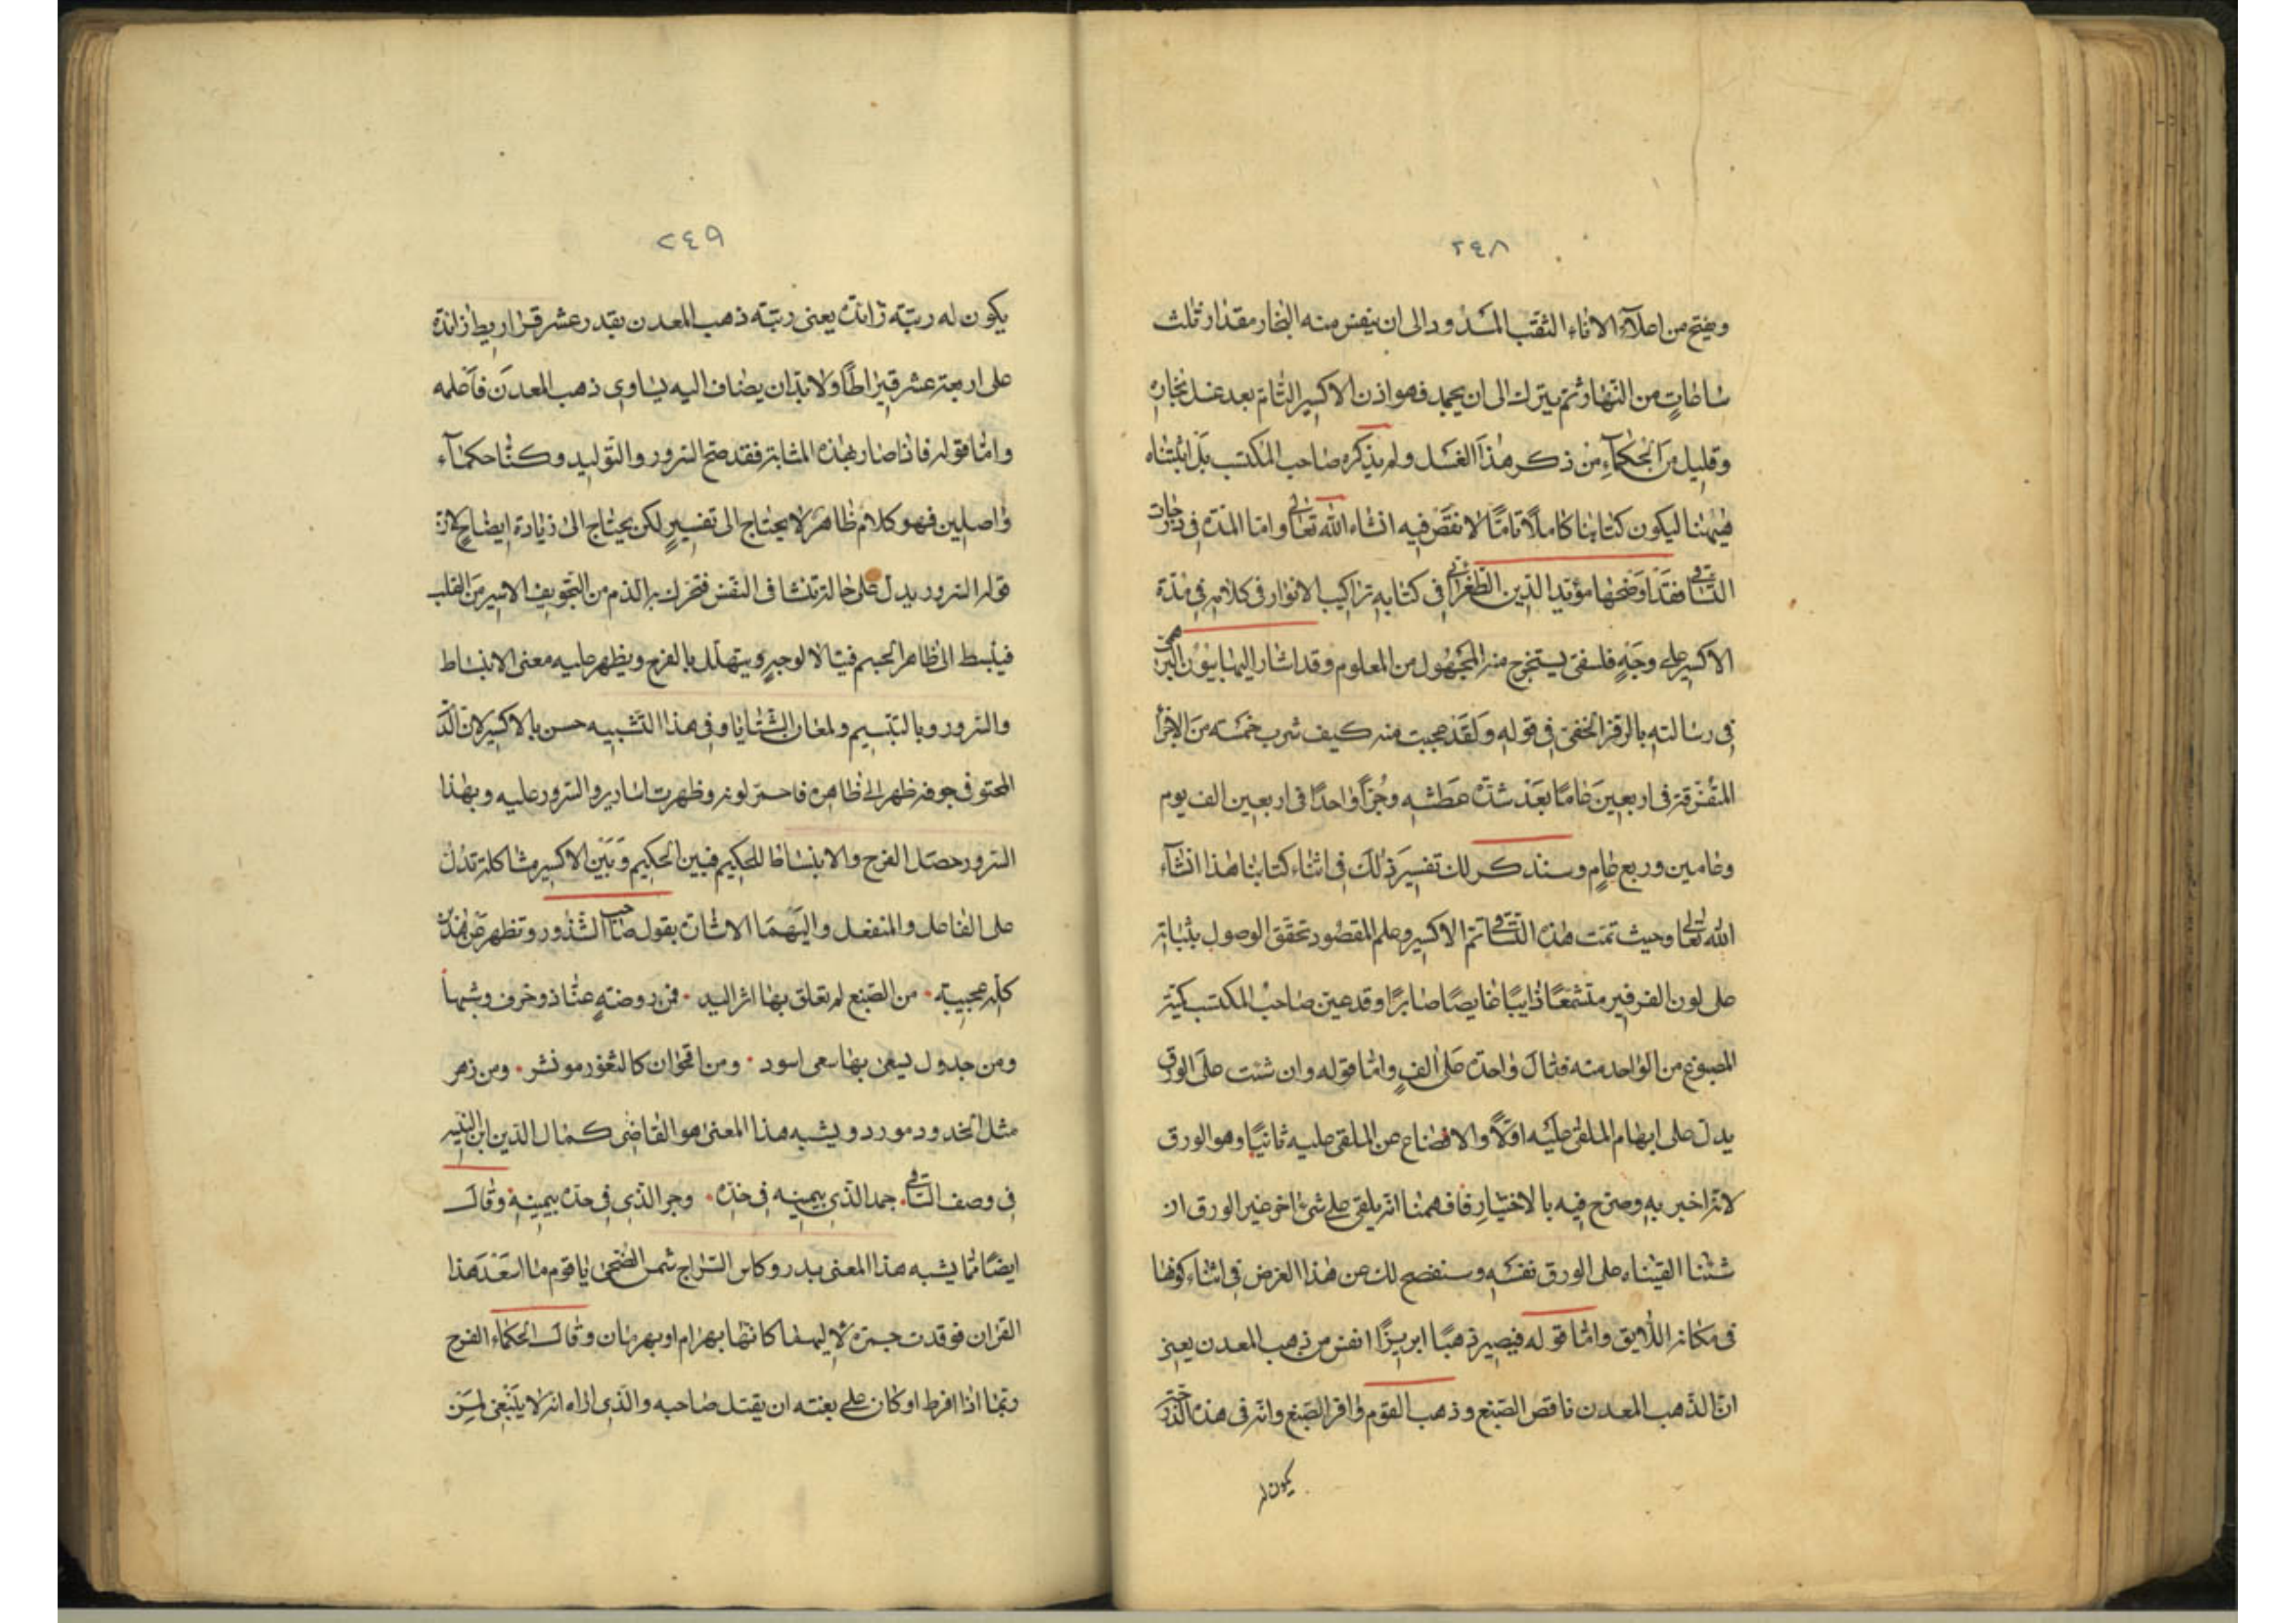 ٢٤٨
ويفتح من اعلآء الاناء الثقب المسدود الى ان ينفس منه البخار مقدار ثلث
ساعاتٍ من النهار ثم يترك الى ان يجمد فهو اذن الاكسير التام بعد غسل بخاره
وقليل من الحكمآء من ذكر هذا الغسل ولم يذكره صاحب المكتسب بل اثبتناه
ليكون كتابنا كاملًا تامًا لا نقص فيه انشاء الله تعالى واما المدة فى درجات
التساقى فقد اوضحها مؤيد الدين الطغرائى فى كتابه تراكيب الانوار فى كلامه فى مدة
الاكسير على وجهٍ فلسفى يستخرج منه المجهول من المعلوم وقد اشار اليها بيون البرهمى
فى رسالته بالرمز الخفى فى قوله ولقد عجبت منه كيف شرب خمسه من الاجزا
المتفرقة فى اربعين عامًا بعد شدة عطشه وجزًا واحدًا فى اربعين الف يوم
وعامين وربع عامٍ وسنذكر لك تفسير ذلك فى اثناء كتابنا هذا انشآء
الله تعالى وحيث تمت هذه التساقى تم الاكسير وعلم المقصود تحقق الوصول بثباته
على لون الفرفير متشمعًا ذايبًا غايصًا صابرًا وقد عين صاحب المكتسب كمية
المصبوغ من الواحد منه فقال واحده على الفٍ واما قوله وان شئت على الورق
يدل على ابهام الملقى عليه اولًا والافصاح عن الملقى عليه ثانيًا وهو الورق
لانه اخبر به وصرح فيه بالاختيار فافهمنا انه يلقى على شىء اخر غير الورق ان
شئنا القيناه على الورق نفسه وسنفصح لك عن هذا الغرض فى اثناء كونها
فى مكانه اللايق واما قوله فيصير ذهبًا ابريزًا انفس من ذهب المعدن يعنى
ان الذهب المعدن ناقص الصبغ وذهب القوم وافر الصبغ وانه فى هذه الدرجة
يكون له
٢٤٩
يكون له رتبة زائدة يعنى رتبة ذهب المعدن بقدر عشر قراريط زائدة
على اربعة عشر قيراطًا ولا بد ان يضاف اليه يساوى ذهب المعدن فاعلمه
واما قوله فاذا صار بهذه المثابة فقد صح السرور والتوليد وكنا حكمآء
واصلين فهو كلام ظاهر لا يحتاج الى تفسيرٍ لكن يحتاج الى زيادة ايضاح لان
قوله السرور يدل على حالة تنشا فى النفس فتحرك به الدم من التجويف الايسر من القلب
فيبسط الى ظاهر الجسم فيتلالا لوجهٍ ويتهلل بالفرح ويظهر عليه معنى الانبساط
والسرور وبالتبسيم ولمعان الثنايا وفى هذا التشبيه حسن بالاكسير لان الدم
المحتو فى جوفه ظهر الى ظاهره فاحمر لونه وظهرت اسارير والسرور عليه وبهذا
السرور حصل الفرح والانبساط للحكيم فبين الحكيم وبين الاكسير مشاكلة تدل
على الفاعل والمنفعل واليهما الاشارة بقول صاحب الشذور وتظهر من هذين
كله عجيبة · من الصبغ لم تعلق بها اثر اليد · فمن روضةٍ عنا ذو خرف وشبها
ومن جدول ليسعى بها سعى اسود · ومن اقحوان كالثغور مونشر · ومن زهر
مثل الخدود مورد ويشبه هذا المعنى هو القاضى كمال الدين ابن النبيه
فى وصف الساقى · جمد الذى بيمينه فى خده · وجر الذى فى خده بيمينه · وقال
ايضًا مما يشبه هذا المعنى بدر وكاس السراج شمس الضحى يا قوم ما اسعد هذا
القران فوقدت جمرة كانها بهرام او بهرمان وقال الحكماء الفرح
ربما اذا افرط او كان على بغته ان يقتل صاحبه والذى اراه انه لا ينبغى لمن